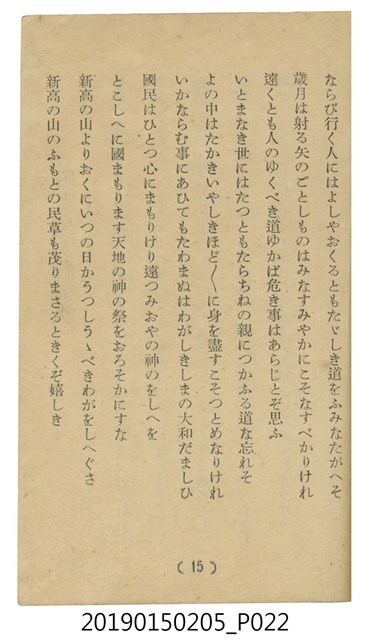 ならび行く人にはよしやおくるともたゞしき道をふみなたがへそ
歳月は射る矢のごとしものはみなすみやかにこそなすべかりけれ
遠くとも人のゆくべき道ゆかば危き事はあらじとぞ思ふ
いとまなき世にはたつともたらちねの親につかふる道な忘れそ
よの中はたかきいやしきほど〳〵に身を盡すこそつとめなりけれ
いかならむ事にあひてもたわまぬはわがしきしまの大和だましひ
國民はひとつ心にまもりけり遠つみおやの神のをしへを
とこしへに國まもります天地の神の祭をおろそかにすな
新高の山よりおくにいつの日かうつしうゝべきわがをしへぐさ
新高の山のふもとの民草も茂りまさるときくぞ嬉しき
(15)
20190150205_P022